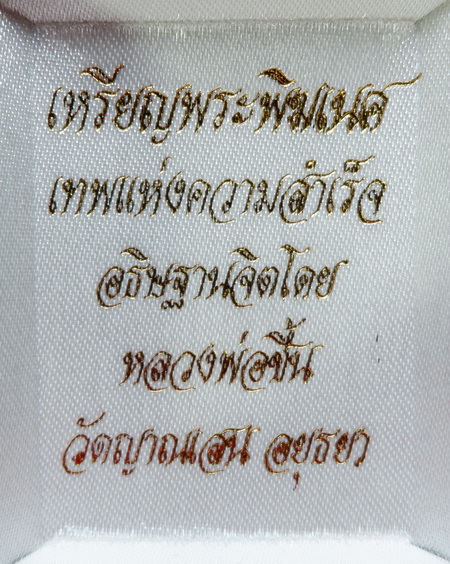 เหรียญพระพิฆเนศ
เทพแห่งความสำเร็จ
อธิษฐานจิตโดย
หลวงพ่อขึ้น
วัดญาณเสน อยุธยา